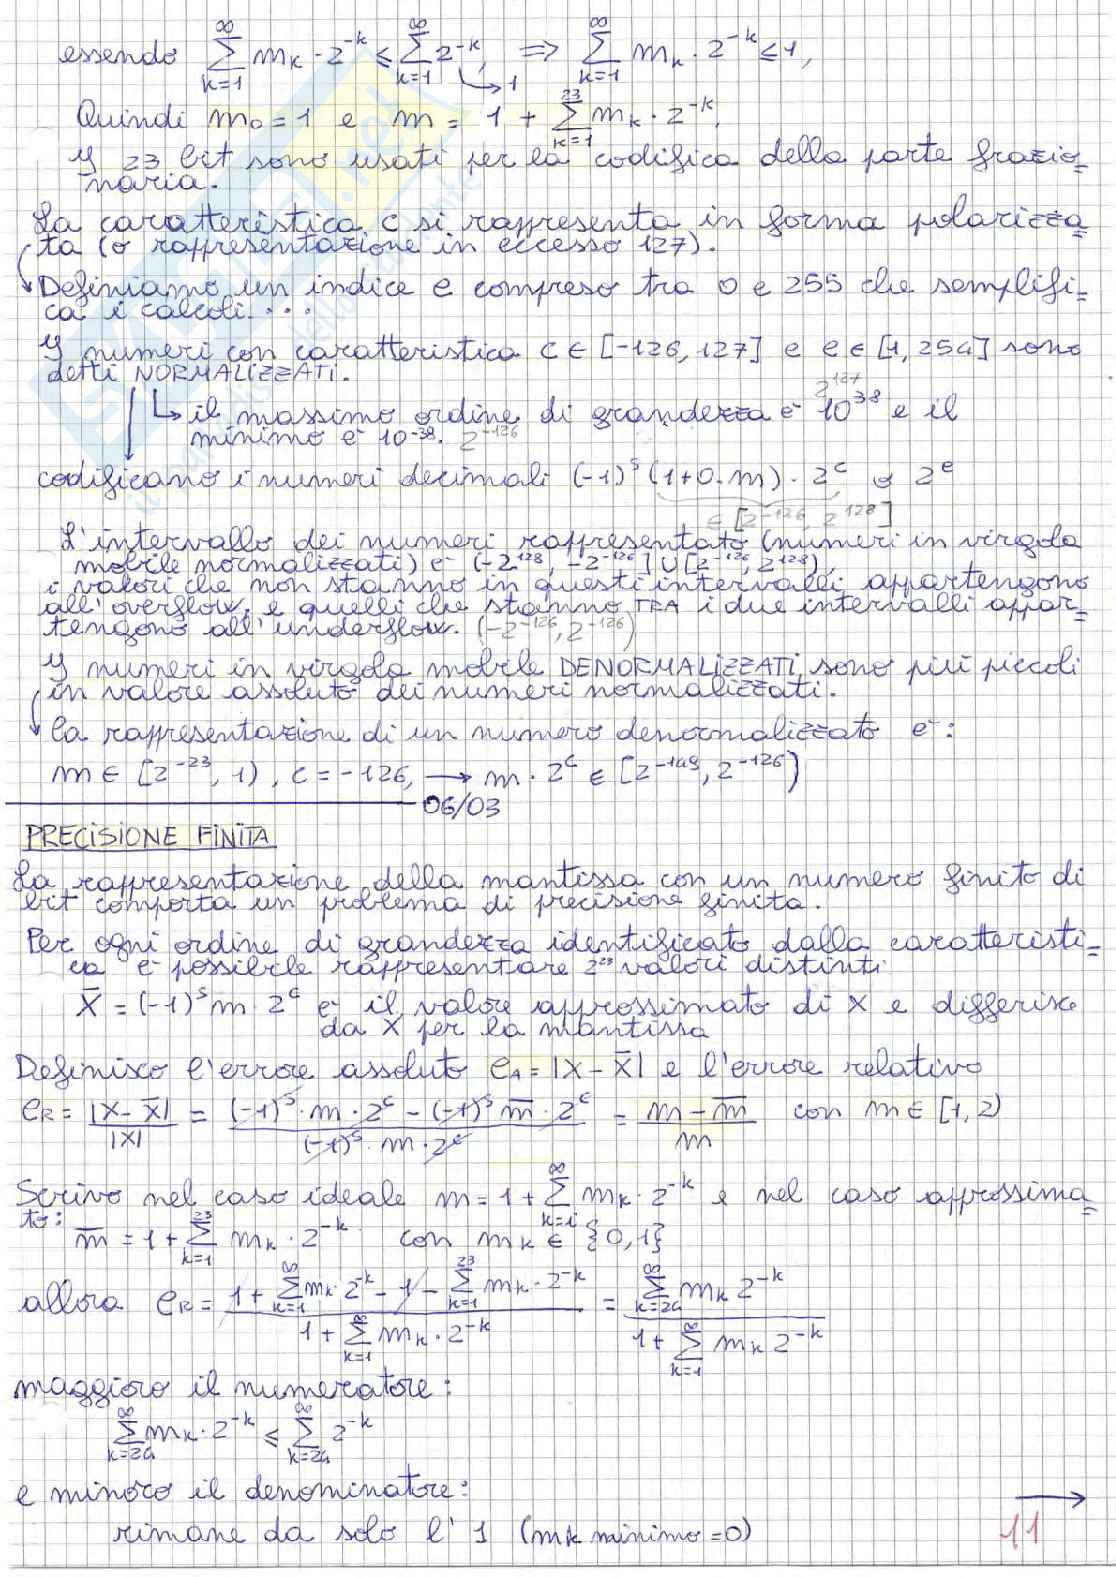 essendo ∑_{k=1}^{∞} m_k · 2^{-k} ≤ ∑_{k=1}^{∞} 2^{-k}, ⇒ ∑_{k=1}^{∞} m_k · 2^{-k} ≤ 1,
↳ 1
Quindi m_0 = 1 e m = 1 + ∑_{k=1}^{23} m_k · 2^{-k},
I 23 bit sono usati per la codifica della parte frazio=
naria.
La caratteristica c si rappresenta in forma polarizza=
ta (o rappresentazione in eccesso 127).
↳ Definiamo un indice e compreso tra 0 e 255 che semplifi=
ca i calcoli....
I numeri con caratteristica c ∈ [-126, 127] e e ∈ [1, 254] sono
detti NORMALIZZATI.
2^{127}
↳ il massimo ordine di grandezza è 10^{38} e il
minimo è 10^{-38}. 2^{-126}
codificano i numeri decimali (-1)^s (1+0.m) · 2^c o 2^e
∈ [2^{-126}, 2^{128}]
L'intervallo dei numeri rappresentato (numeri in virgola
mobile normalizzati) è (-2^{128}, -2^{-126}] ∪ [2^{-126}, 2^{128}),
i valori che non stanno in questi intervalli appartengono
all'overflow, e quelli che stanno TRA i due intervalli appar=
tengono all'underflow. (-2^{-126}, 2^{-126})
I numeri in virgola mobile DENORMALIZZATI sono più piccoli
in valore assoluto dei numeri normalizzati.
↳ la rappresentazione di un numero denormalizzato è:
m ∈ [2^{-23}, 1), c = -126, → m · 2^c ∈ [2^{-149}, 2^{-126})
06/03
PRECISIONE FINITA
La rappresentazione della mantissa con un numero finito di
bit comporta un problema di precisione finita.
Per ogni ordine di grandezza identificato dalla caratteristi=
ca è possibile rappresentare 2^{23} valori distinti
X̄ = (-1)^s m · 2^c è il valore approssimato di X e differisce
da X per la mantissa
Definisco l'errore assoluto e_A = |X - X̄| e l'errore relativo
e_R = |X - X̄| / |X| = ((-1)^s · m · 2^c - (-1)^s m̄ · 2^c) / ((-1)^s · m · 2^c) = (m - m̄) / m con m ∈ [1, 2)
Scrivo nel caso ideale m = 1 + ∑_{k=1}^{∞} m_k · 2^{-k} e nel caso approssima=
to: m̄ = 1 + ∑_{k=1}^{23} m_k · 2^{-k} con m_k ∈ {0,1}
allora e_R = (1 + ∑_{k=1}^{∞} m_k · 2^{-k} - 1 - ∑_{k=1}^{23} m_k · 2^{-k}) / (1 + ∑_{k=1}^{∞} m_k · 2^{-k}) = (∑_{k=24}^{∞} m_k 2^{-k}) / (1 + ∑_{k=1}^{∞} m_k 2^{-k})
maggioro il numeratore:
∑_{k=24}^{∞} m_k · 2^{-k} ≤ ∑_{k=24}^{∞} 2^{-k}
e minoro il denominatore:
rimane da solo l'1 (m_k minimo = 0)
→
11